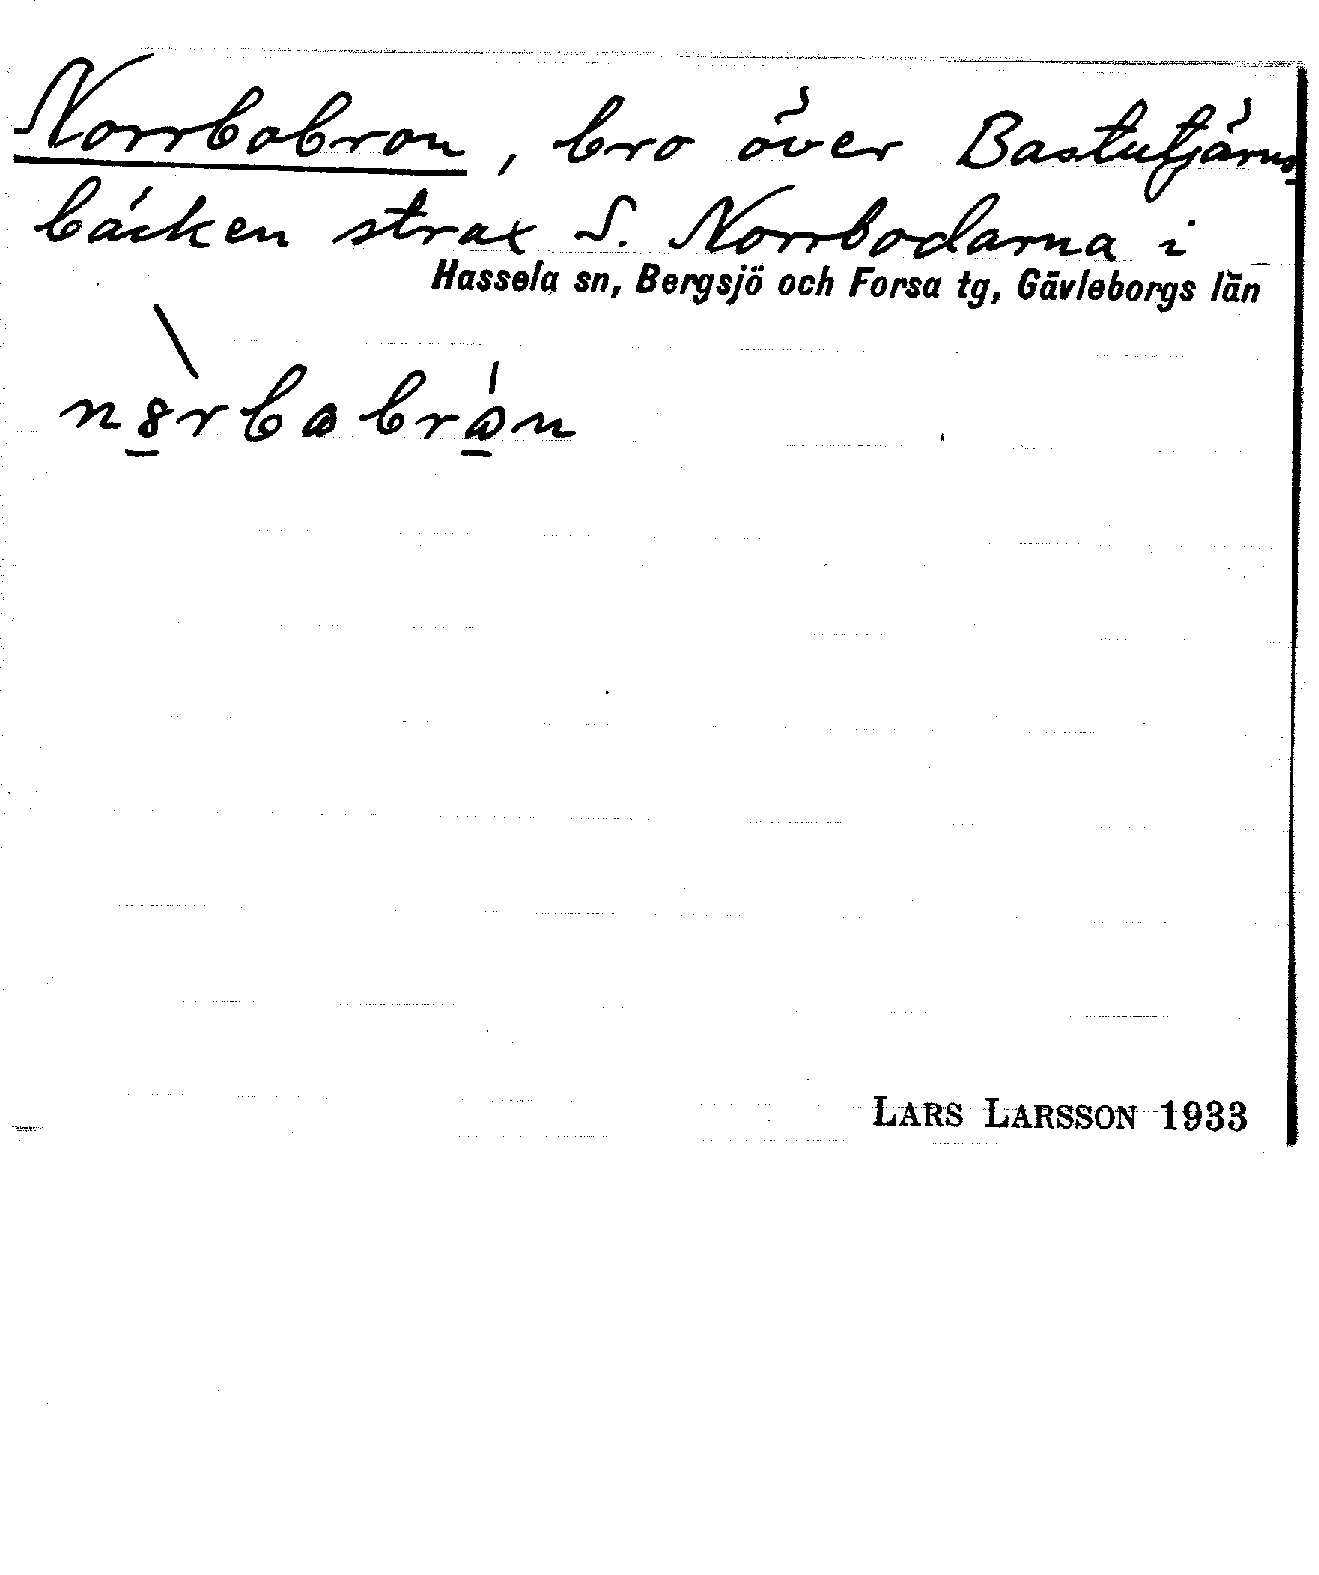 Norrbobron, bro över Bastutjärns-
bäcken strax S. Norrbodarna i
Hassela sn, Bergsjö och Forsa tg, Gävleborgs län
LARS LARSSON 1933